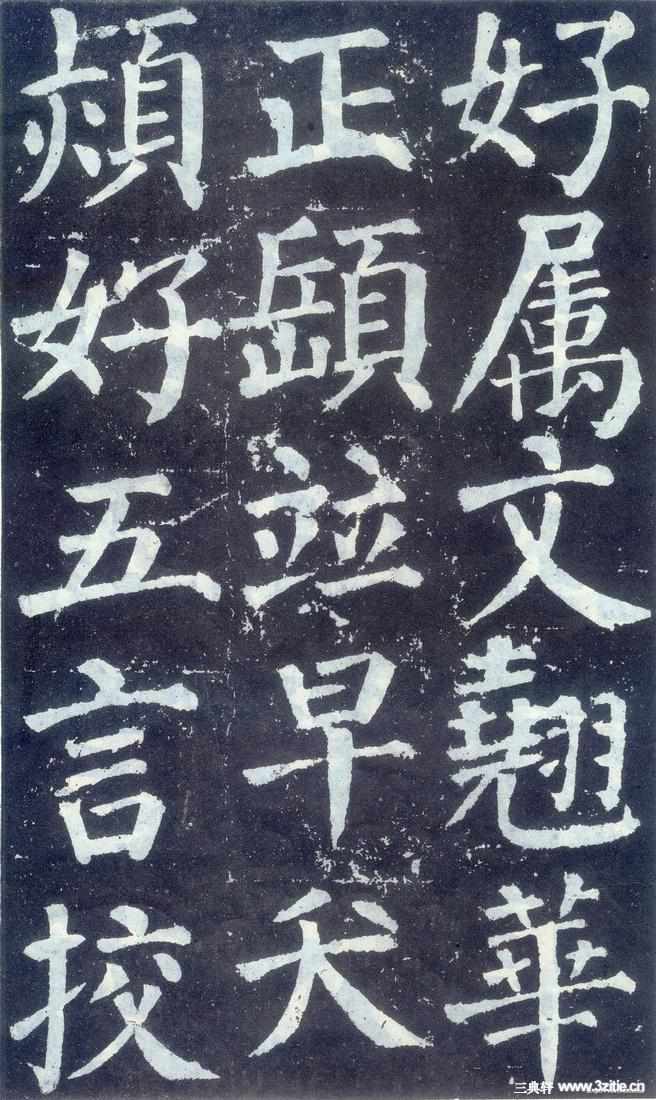 好属文翹華
正竝早夭
頻好五言挍
三典轩 www.3zitie.cn